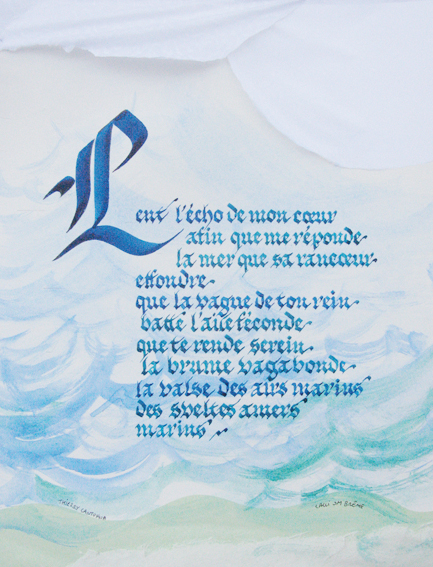 Lent l'écho de mon cœur
afin que me réponde
la mer que sa rancœur
effondre
que la vague de ton rein
batte l'aile féconde
que te rende serein
la brume vagabonde
la valse des airs marins
des sveltes amers
marins